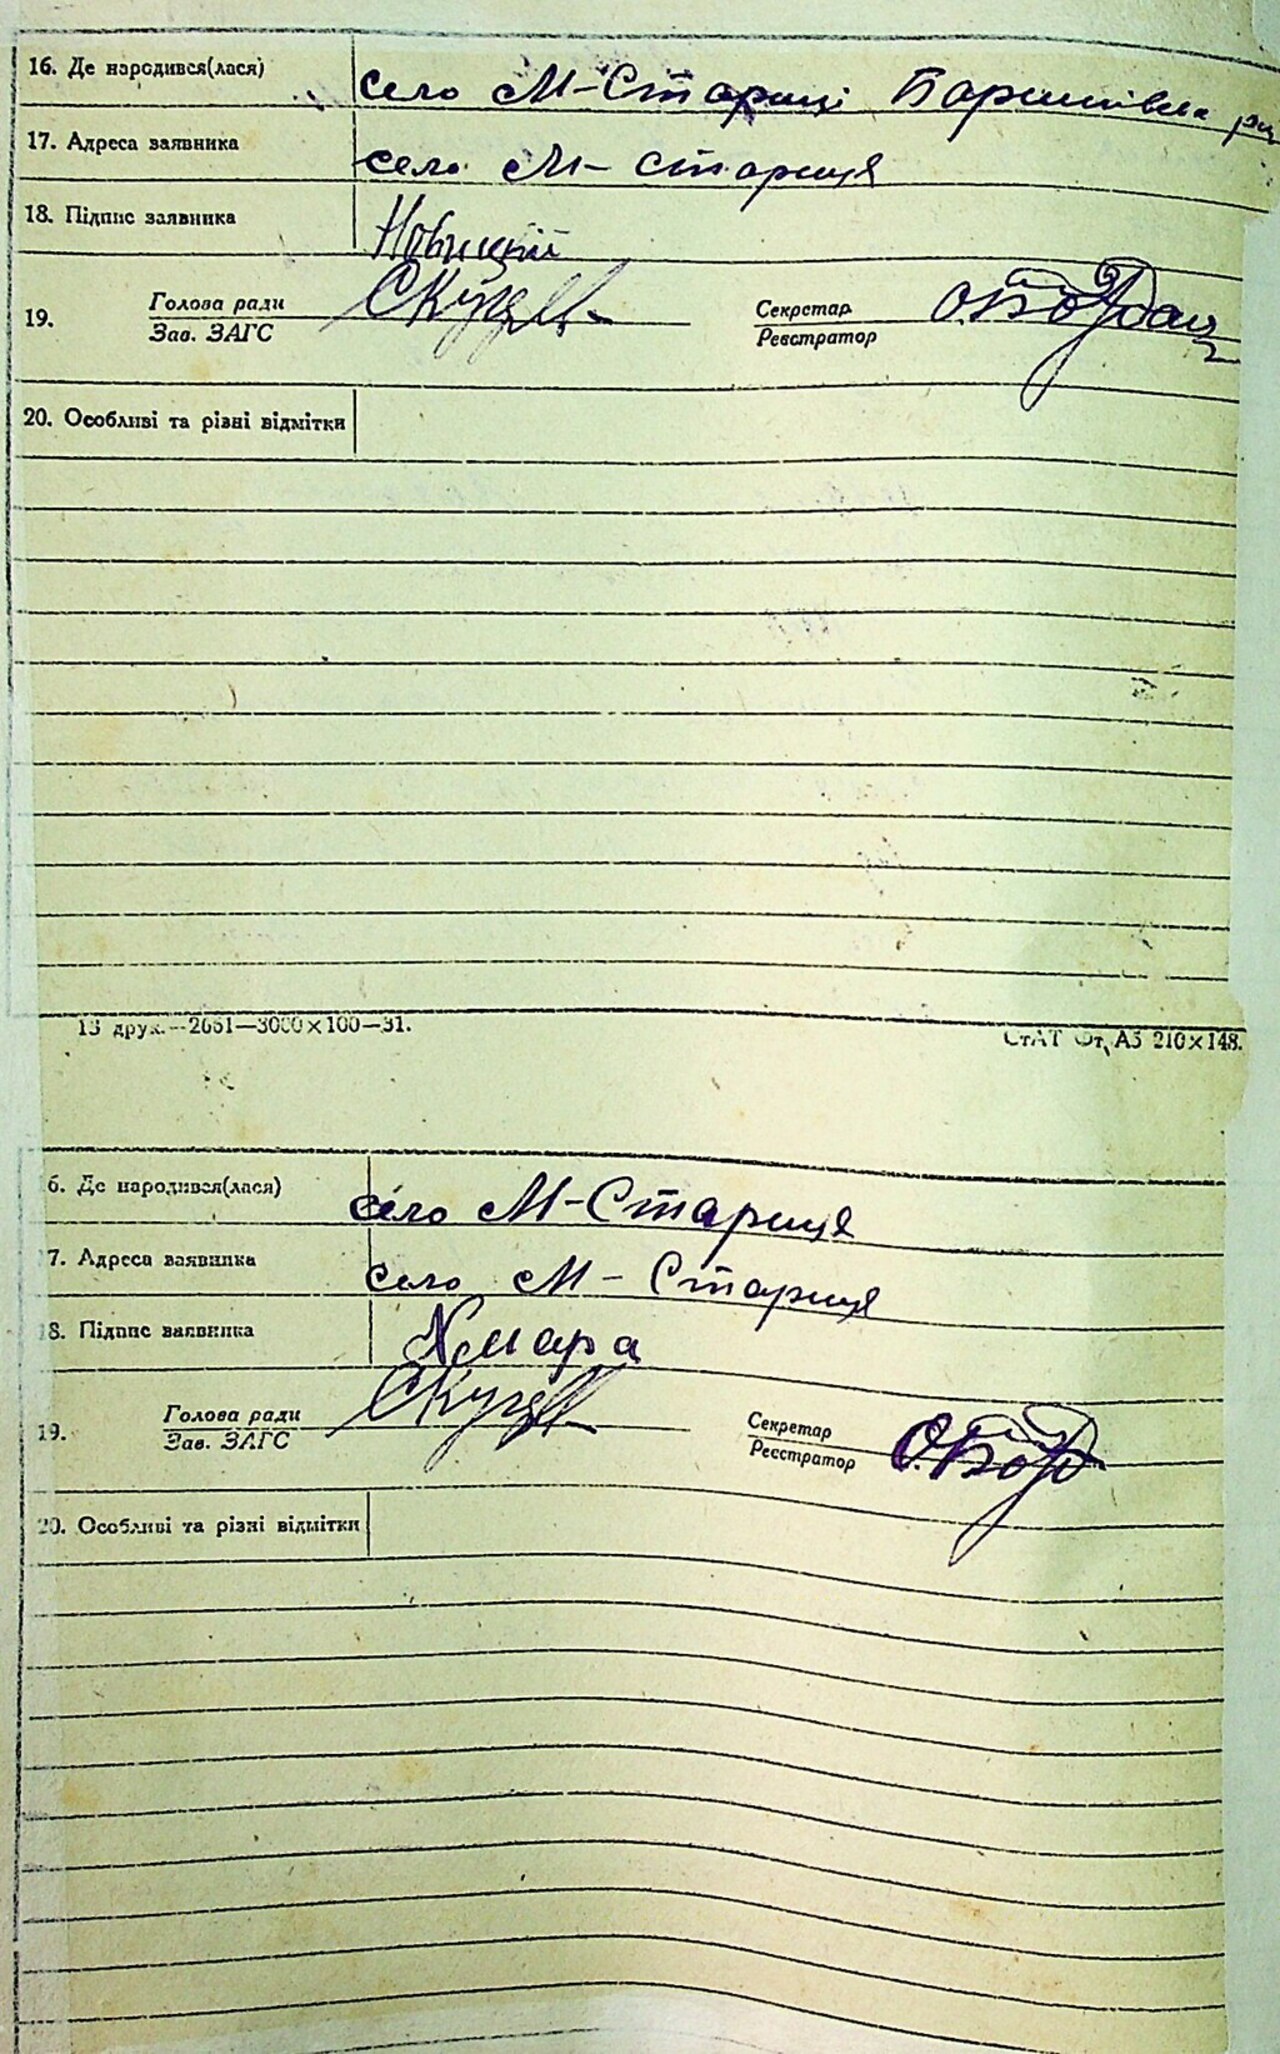 16. Де народився(лася) село М-Стариці
17. Адреса заявника село М- стариця
18. Підпис заявника Новицкий
Голова ради Секретар
19.
Зав. ЗАГС Реєстратор
20. Особливі та різні відмітки
13 друк.—2651—3000×100—31. СтАТ Фт, А5 210×148.
6. Де народився(лася) село М-Стариця
7. Адреса заявника село М- Стариця
8. Підпис заявника Хмара
Голова ради Секретар
19.
Зав. ЗАГС Реєстратор
20. Особливі та різні відмітки